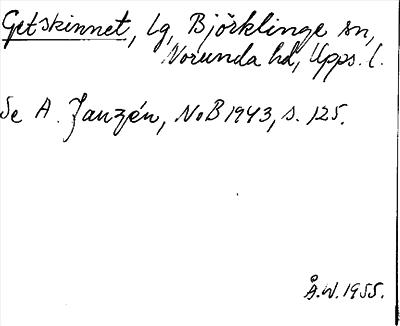 Getskinnet, lg, Björklinge sn,
Norunda hd, Upps. l.
Se A. Janzén, NoB 1943, s. 125.
Å.W. 1955.